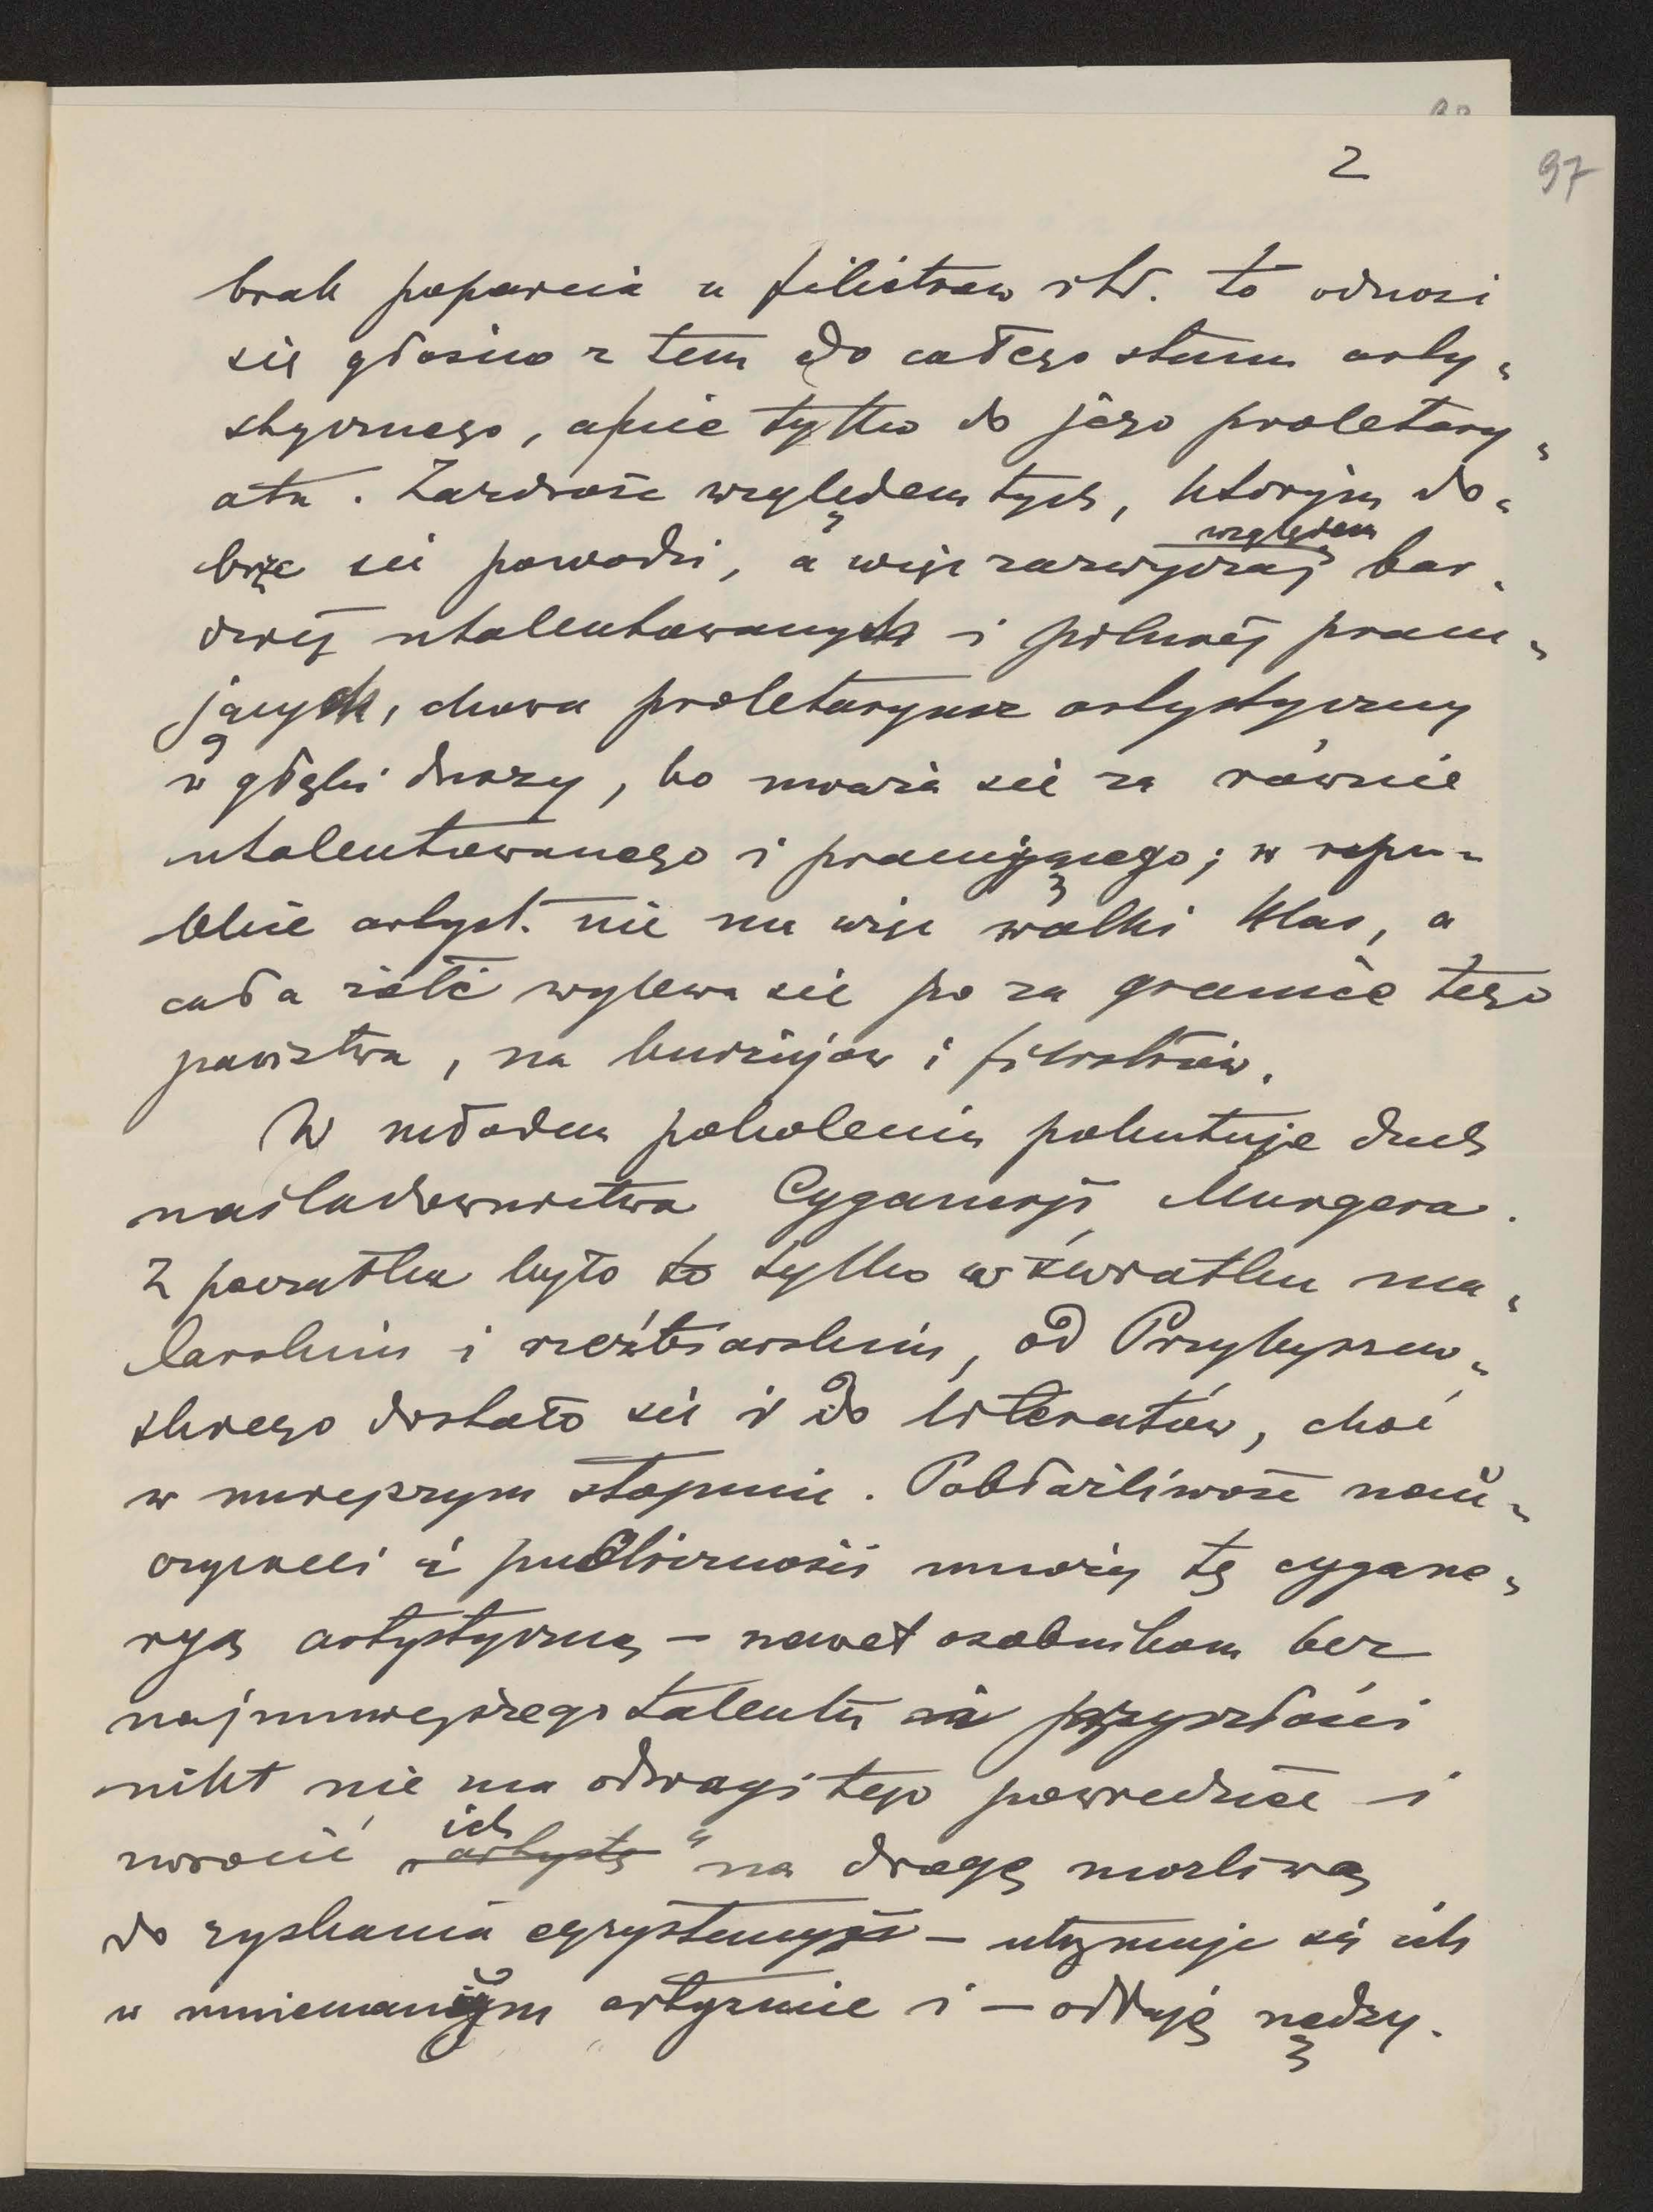 2
97
brak poparcia u filistrów itd. to odnosi
się głośno z tem do całego stanu arty-
stycznego, a nie tylko do jego proletary-
atu. Zazdrość względem tych, którym do-
brze się powodzi, a więc zazwyczaj względem bar-
dziej utalentowanych i pilniej pracu-
jących, chowa proletaryusz artystyczny
w głębi duszy, bo uważa się za równie
utalentowanego i pracującego; w repu-
blice artyst. nie ma więc walki klas, a
cała żółć wylewa się po za granice tego
państwa, na burżujów i filistrów.
W młodem pokoleniu pokutuje duch
naśladownictwa Cyganerji Murgera.
Z początku było to tylko w światku ma-
larskim i rzeźbiarskim, od Przybyszew-
skiego dostało się i do literatów, choć
w mniejszym stopniu. Pobłażliwość nau-
czycieli i publiczności mnoży tę cygane-
ryę artystyczną – nawet osobnikom bez
najmniejszego talentu i przyszłości
nikt nie ma odwagi tego powiedzieć i
zwrócić ich „artystę" na drogę możliwą
do zyskania egzystencyi – utrzymuje się ich
w mniemanym artyzmie i – oddają nędzy.